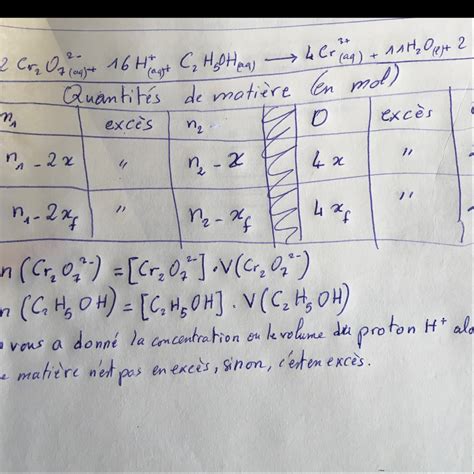 2 Cr₂O₇²⁻(aq) + 16H⁺(aq) + C₂H₅OH(aq) ⟶ 4Cr³⁺(aq) + 11H₂O(l) + 2
Quantités de matière (en mol)
n₁ excès n₂ 0 excès
n₁ - 2x " n₂ - x 4x "
n₁ - 2x_f " n₂ - x_f 4x_f "
n (Cr₂O₇²⁻) = [Cr₂O₇²⁻] . V(Cr₂O₇²⁻)
n (C₂H₅OH) = [C₂H₅OH] . V(C₂H₅OH)
vous a donné la concentration ou le volume du proton H⁺ alo
matière n'est pas en excès, sinon, c'est en excès.